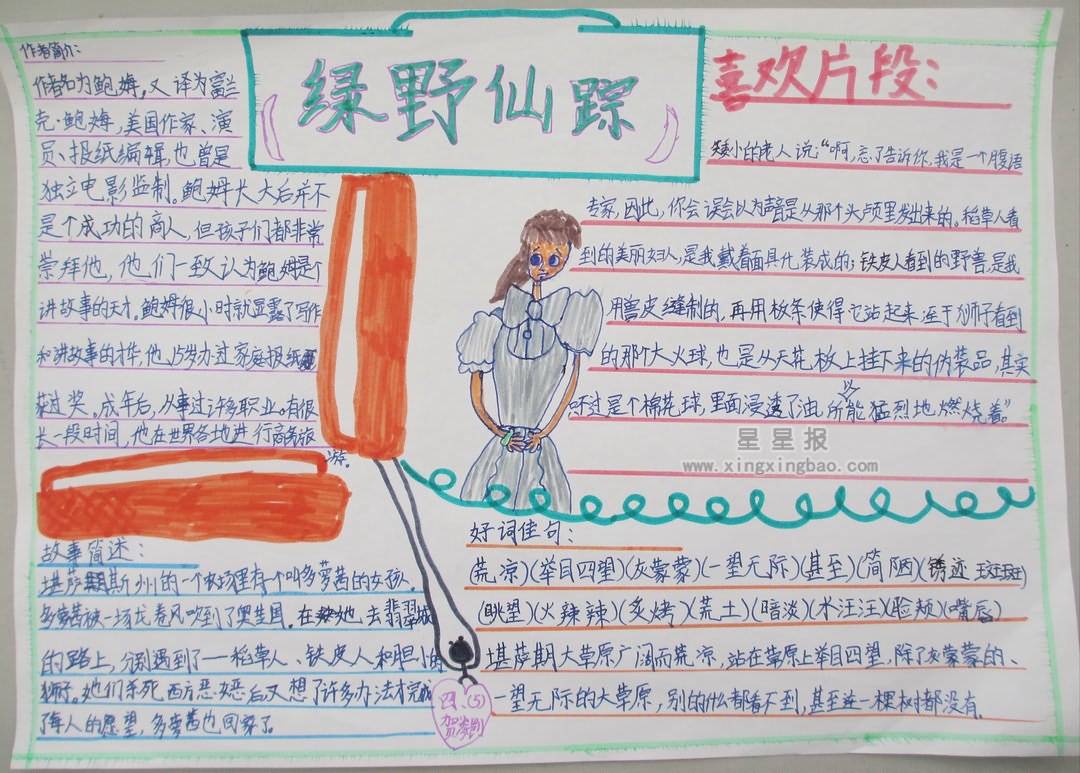 绿野仙踪
作者简介:
作者名为鲍姆,又译为富兰
克·鲍姆,美国作家、演
员、报纸编辑,也曾是
独立电影监制。鲍姆长大后并不
是个成功的商人,但孩子们都非常
崇拜他,他们一致认为鲍姆是个
讲故事的天才。鲍姆很小时就显露了写作
和讲故事的才华,他15岁办过家庭报纸
获过奖。成年后,从事过许多职业。有很
长一段时间,他在世界各地进行商务旅
游。
故事简述:
堪萨斯州的一个农场里有个叫多萝茜的女孩。
多萝茜被一场龙卷风吹到了奥芝国。在她去翡翠城
的路上,分别遇到了——稻草人、铁皮人和胆小的
狮子。她们杀死西方恶女巫后又想了许多办法才完成
了每人的愿望,多萝茜也回家了。
喜欢片段:
矮小的老人说:“啊,忘了告诉你,我是一个腹语
专家,因此,你会误会以为声音是从那个头颅里发出来的。稻草人看
到的美丽妇人,是我戴着面具化装成的;铁皮人看到的野兽,是我
用兽皮缝制的,再用板条使得它站起来;至于狮子看到
的那个大火球,也是从天花板上挂下来的伪装品,其实
只不过是个棉花球,里面浸透了油,所以能猛烈地燃烧着。”
星星报
www.xingxingbao.com
好词佳句:
(荒凉)(举目四望)(灰蒙蒙)(一望无际)(甚至)(简陋)(锈迹斑斑)
(眺望)(火辣辣)(炙烤)(荒土)(暗淡)(水汪汪)(脸颊)(嘴唇)
堪萨期大草原广阔而荒凉,站在草原上举目四望,除了灰蒙蒙的、
一望无际的大草原,别的什么都看不到,甚至连一棵树都没有。
四、(5)